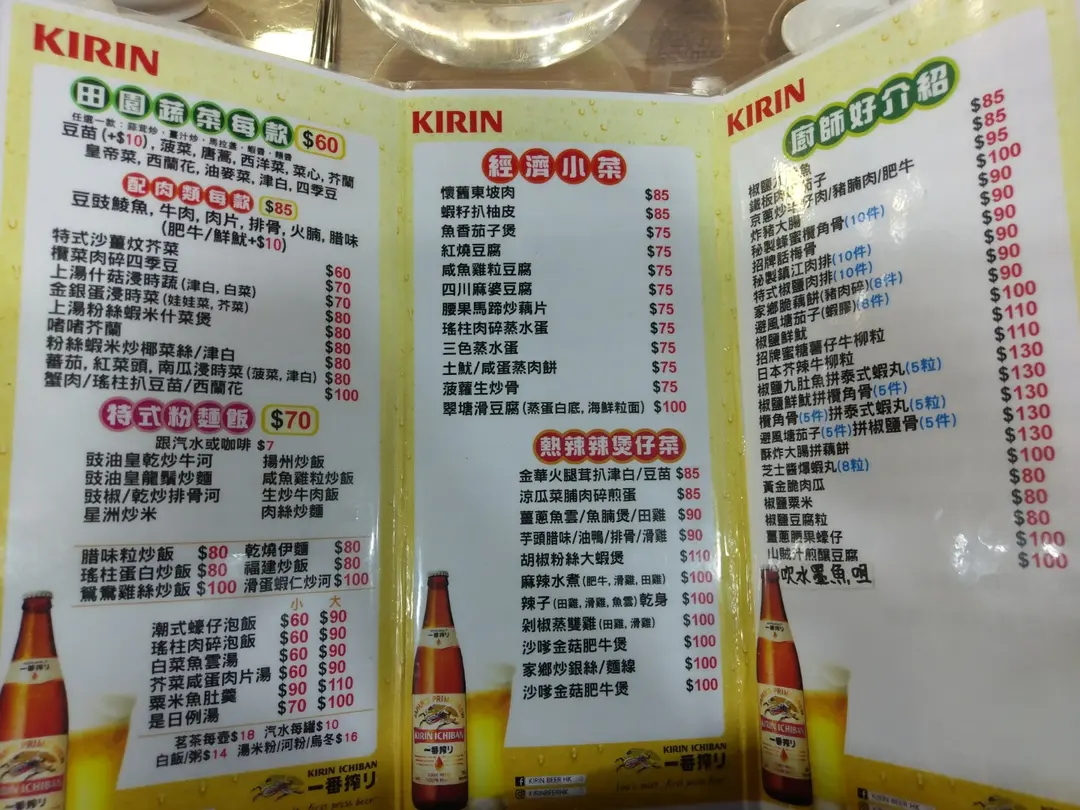 KIRIN
田園蔬菜每款 $60
任選一款：蒜茸炒，薑汁炒，馬拉盞，蝦醬，麵醬
豆苗(+$10)，菠菜，唐蒿，西洋菜，菜心，芥蘭
皇帝菜，西蘭花，油麥菜，津白，四季豆
配肉類每款 $85
豆豉鯪魚，牛肉，肉片，排骨，火腩，腊味
(肥牛/鮮魷+$10)
特式沙薑炆芥菜 $60
欖菜肉碎四季豆 $70
上湯什菇浸時蔬(津白，白菜) $70
金銀蛋浸時菜(娃娃菜，芥菜) $80
上湯粉絲蝦米什菜煲 $80
啫啫芥蘭 $80
粉絲蝦米炒椰菜絲/津白 $80
蕃茄，紅菜頭，南瓜浸時菜(菠菜，津白) $80
蟹肉/瑤柱扒豆苗/西蘭花 $100
特式粉麵飯 $70
跟汽水或咖啡 $7
豉油皇乾炒牛河 揚州炒飯
豉油皇龍鬚炒麵 咸魚雞粒炒飯
豉椒/乾炒排骨河 生炒牛肉飯
星洲炒米 肉絲炒麵
腊味粒炒飯 $80 乾燒伊麵 $80
瑤柱蛋白炒飯 $80 福建炒飯 $80
鴛鴦雞絲炒飯 $100 滑蛋蝦仁炒河 $100
小 大
潮式蠔仔泡飯 $60 $90
瑤柱肉碎泡飯 $60 $90
白菜魚雲湯 $60 $90
芥菜咸蛋肉片湯 $60 $90
粟米魚肚羹 $90 $110
是日例湯 $70 $100
茗茶每壺$18 汽水每罐$10
白飯/粥$14 湯米粉/河粉/烏冬$16
KIRIN ICHIBAN
一番搾り
KIRIN
經濟小菜
懷舊東坡肉 $85
蝦籽扒柚皮 $85
魚香茄子煲 $75
紅燒豆腐 $75
咸魚雞粒豆腐 $75
四川麻婆豆腐 $75
腰果馬蹄炒藕片 $75
瑤柱肉碎蒸水蛋 $75
三色蒸水蛋 $75
土魷/咸蛋蒸肉餅 $75
菠蘿生炒骨 $75
翠塘滑豆腐(蒸蛋白底，海鮮粒面) $100
熱辣辣煲仔菜
金華火腿茸扒津白/豆苗 $85
涼瓜菜脯肉碎煎蛋 $85
薑蔥魚雲/魚腩煲/田雞 $90
芋頭腊味/油鴨/排骨/滑雞 $90
胡椒粉絲大蝦煲 $110
麻辣水煮(肥牛，滑雞，田雞) $100
辣子(田雞，滑雞，魚雲)乾身 $100
剁椒蒸雙雞(田雞，滑雞) $100
沙嗲金菇肥牛煲 $100
家鄉炒銀絲/麵線 $100
沙嗲金菇肥牛煲 $100
KIRIN ICHIBAN
一番搾り
KIRIN BEER HK
KIRINBEERHK
KIRIN
廚師好介紹
椒鹽九肚魚 $85
鐵板肉碎茄子 $85
京蔥炒牛仔肉/豬腩肉/肥牛 $95
炸豬大腸 $100
秘製蜂蜜欖角骨(10件) $90
招牌話梅骨 $90
秘製鎮江肉排(10件) $90
特式椒鹽肉排(10件) $90
家鄉脆藕餅(豬肉碎)(8件) $90
避風塘茄子(蝦膠)(8件) $100
椒鹽鮮魷 $110
招牌蜜糖薯仔牛柳粒 $110
日本芥辣牛柳粒 $130
椒鹽九肚魚拼泰式蝦丸(5粒) $130
椒鹽鮮魷拼欖角骨(5件) $130
欖角骨(5件)拼泰式蝦丸(5粒) $130
避風塘茄子(5件)拼椒鹽骨(5件) $130
酥炸大腸拼藕餅 $100
芝士醬爆蝦丸(8粒) $80
黃金脆肉瓜 $80
椒鹽粟米 $80
椒鹽豆腐粒 $100
薑蔥腰果蠔仔 $100
山賊汁煎釀豆腐
吹水墨魚咀
KIRIN ICHIBAN
一番搾り
KIRIN BEER HK